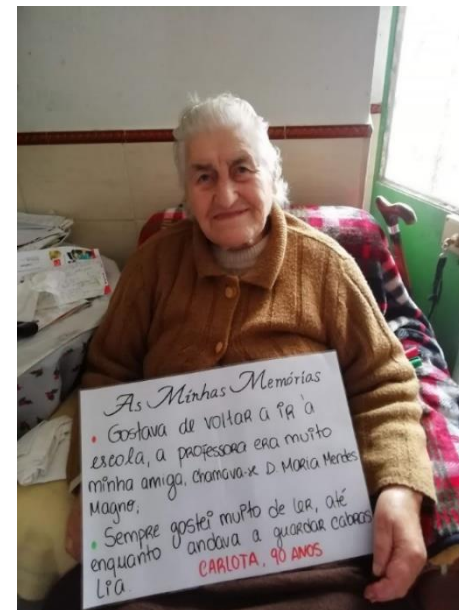 As Minhas Memórias
• Gostava de voltar a ir à
escola, a professora era muito
minha amiga, chamava-se D. Maria Mendes
Magno,
• Sempre gostei muito de ler, até
enquanto andava a guardar cabras
lia.
CARLOTA, 90 ANOS